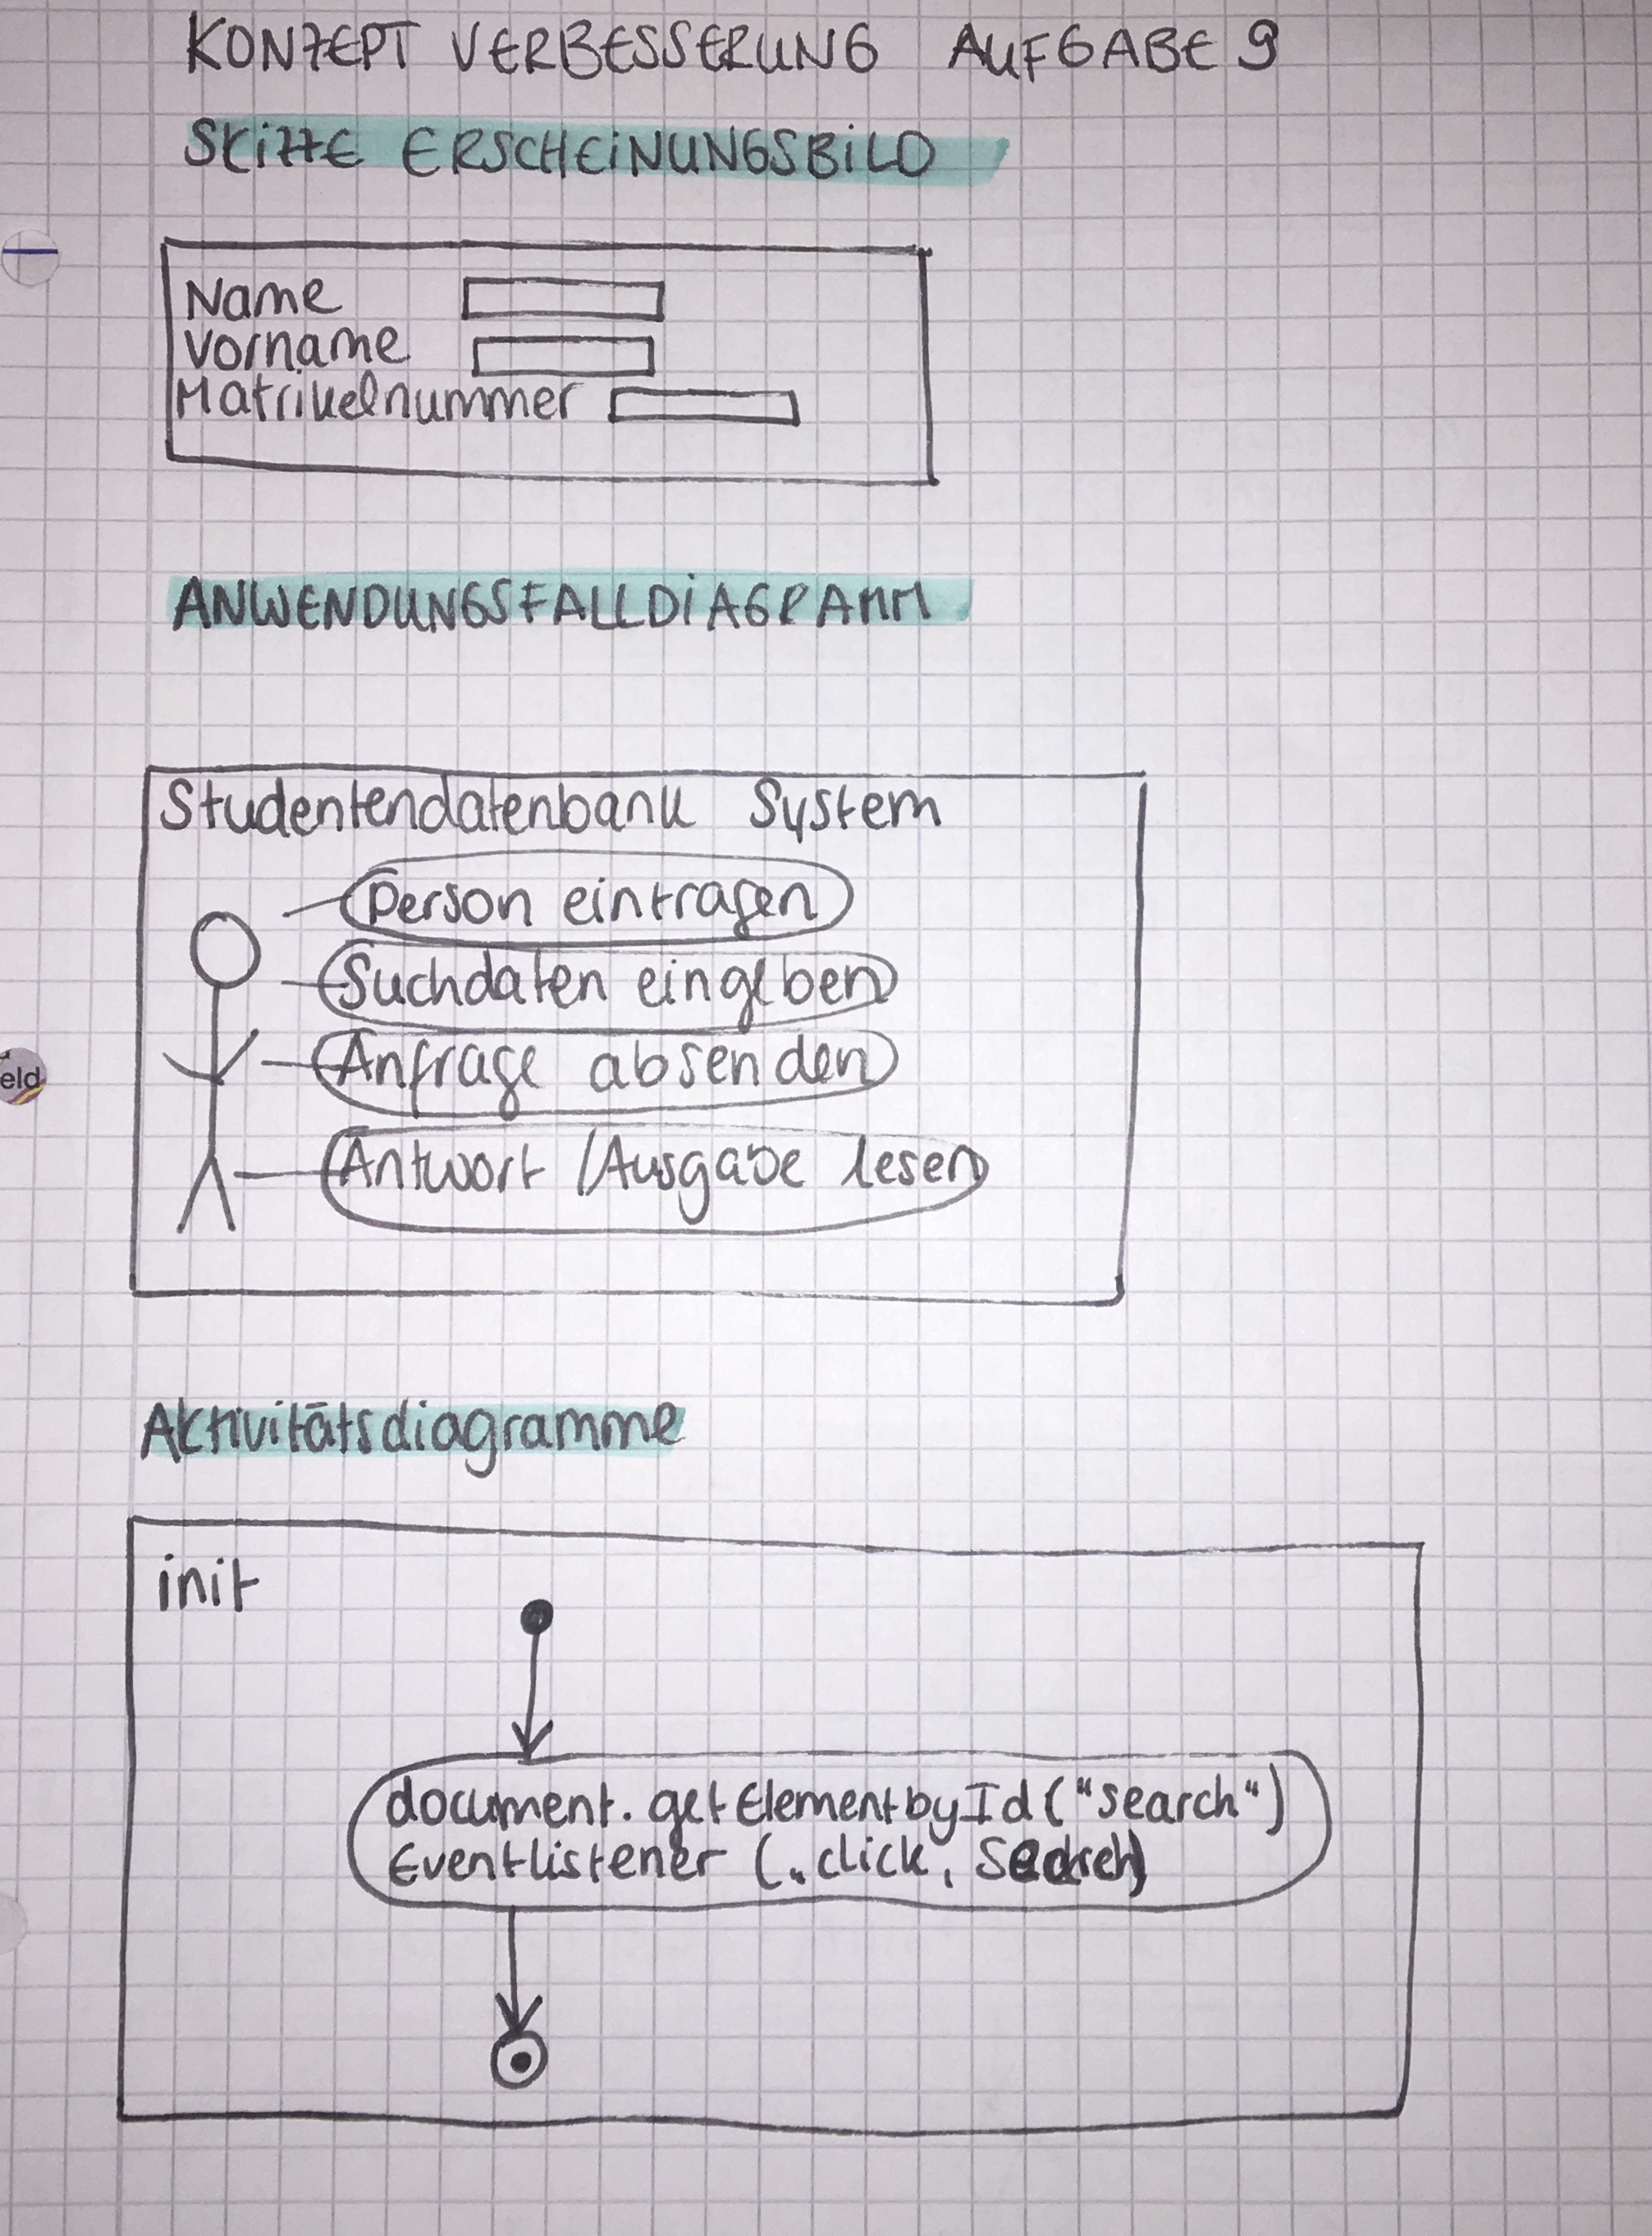 KONZEPT VERBESSERUNG AUFGABE 9
SKIZZE ERSCHEINUNGSBILD
Name
Vorname
Matrikelnummer
ANWENDUNGSFALLDIAGRAMM
Studentendatenbank System
Person eintragen
Suchdaten eingeben
Anfrage absenden
eld
Antwort / Ausgabe lesen
Aktivitätsdiagramme
init
document.getElementbyId("search")
Eventlistener („click, Search)